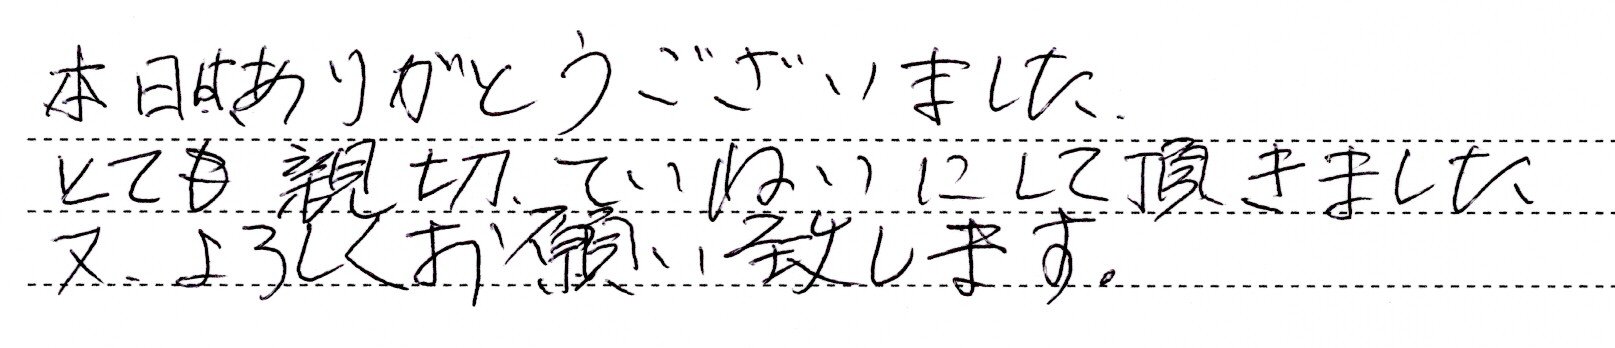 本日はありがとうございました、
とても親切、ていねいにして頂きました、
又、よろしくお願い致します。